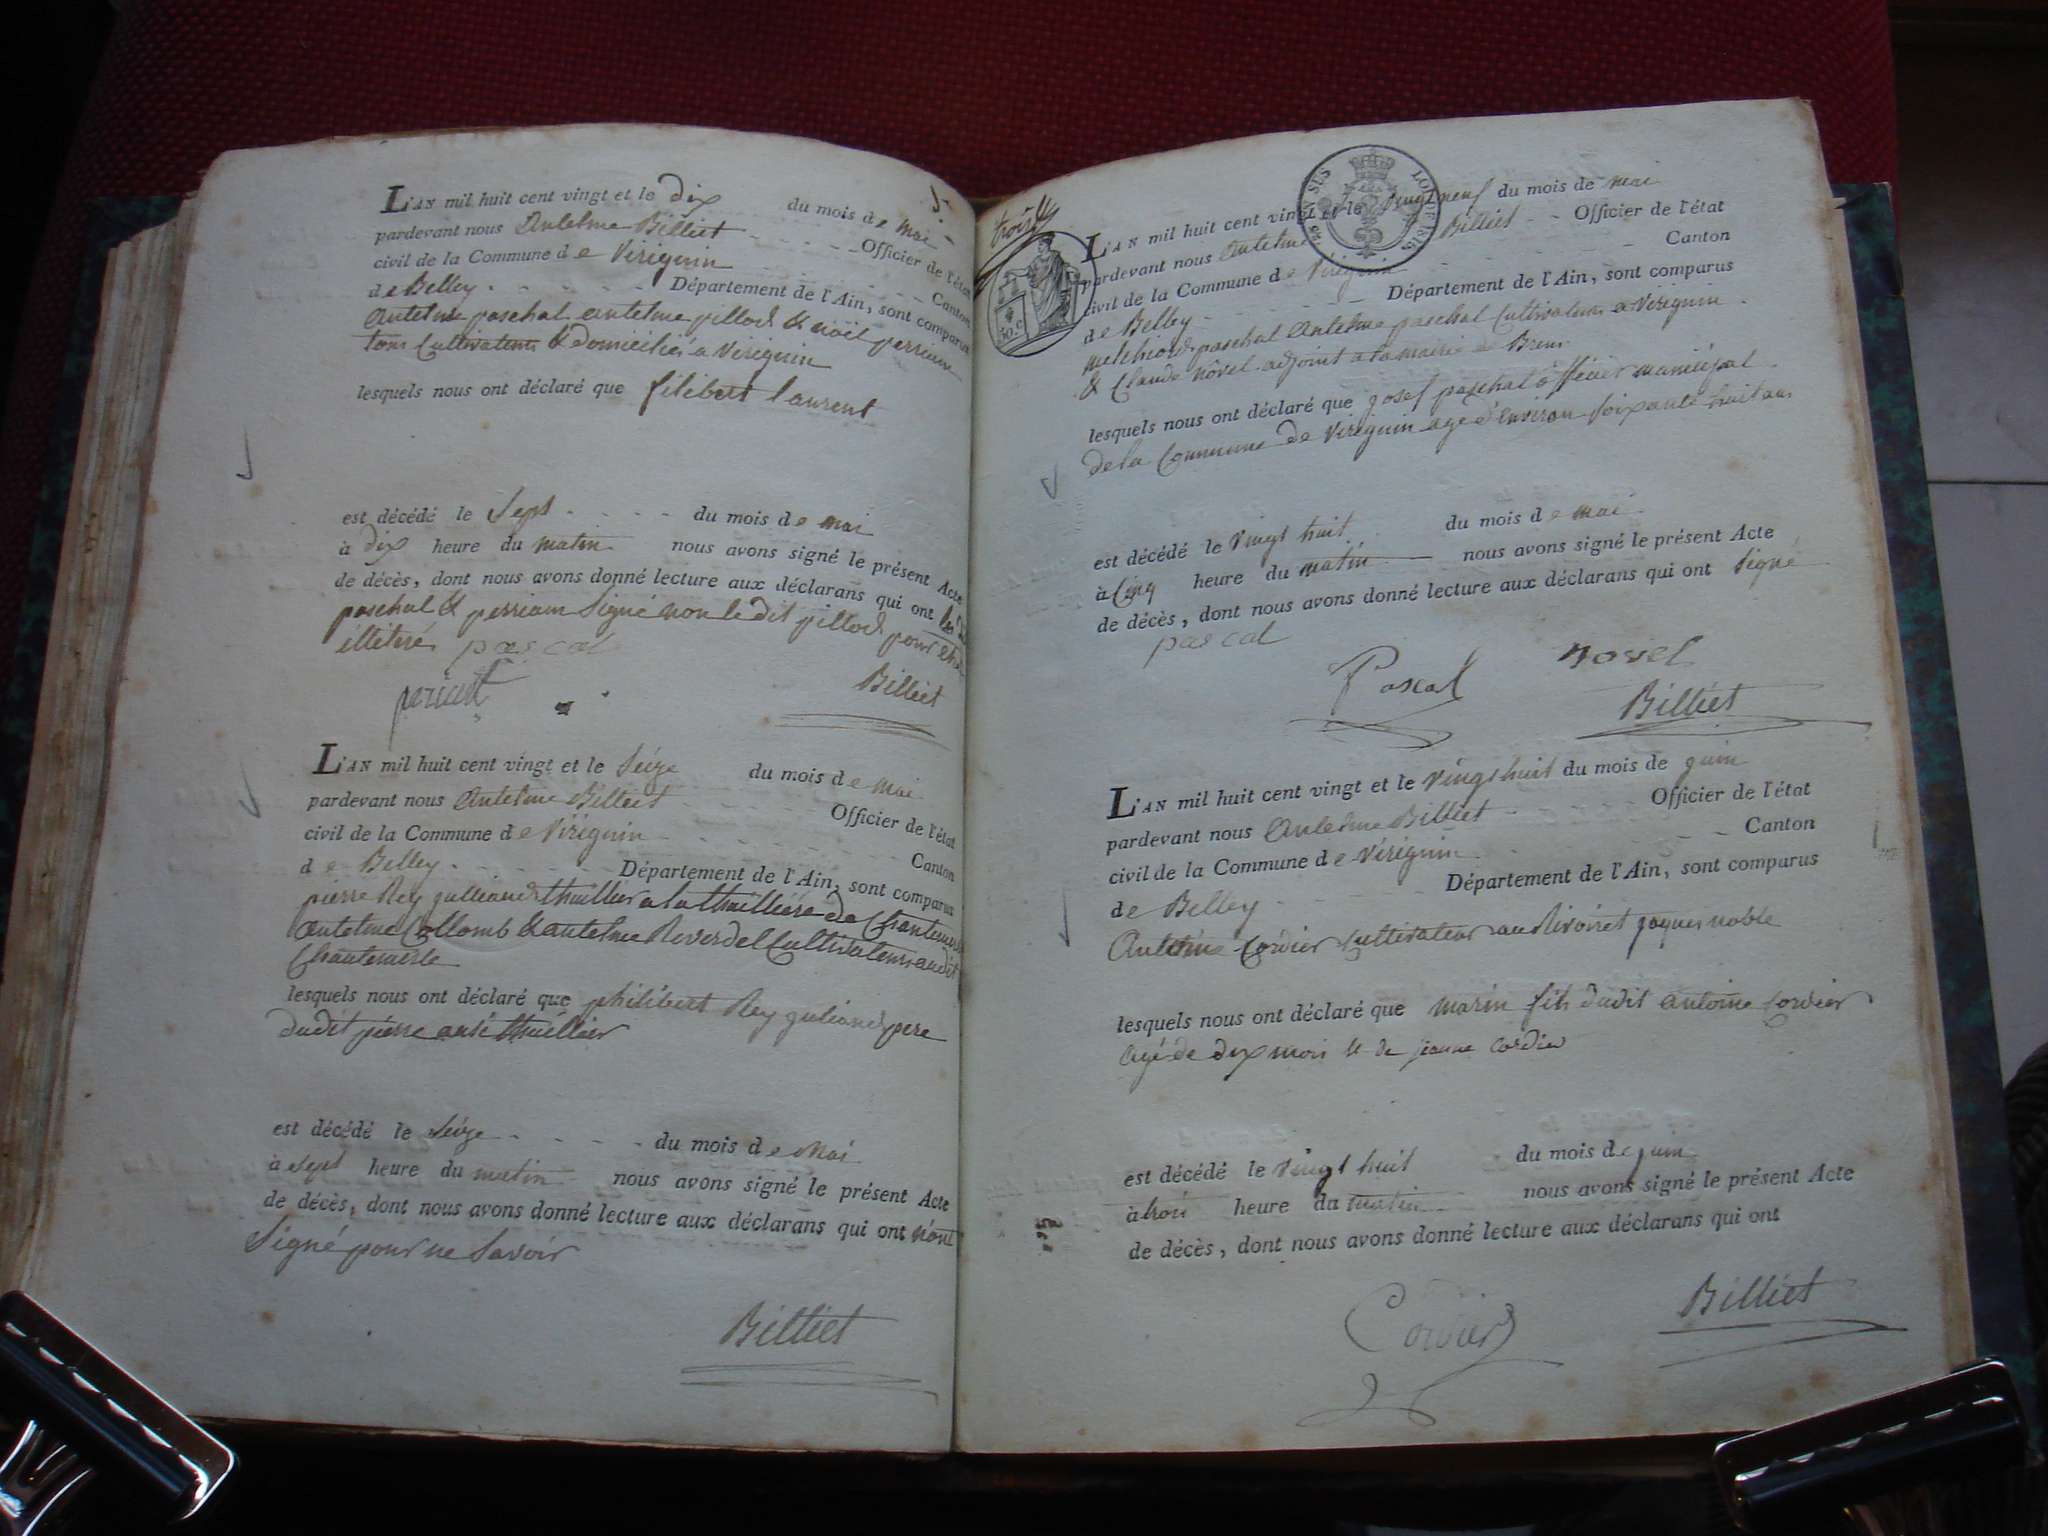 L'AN mil huit cent vingt et le dix du mois de mai
pardevant nous Antelme Billiet Officier de l'état
civil de la Commune de Virignin Canton
de Belley. Département de l'Ain, sont comparus
Antelme paschal antelme pillod & noël perriam
tous Cultivateurs & domiciliés a Virignin
lesquels nous ont déclaré que filibert laurent
est décédé le Sept du mois de mai
à dix heure du matin nous avons signé le présent Acte
de décès, dont nous avons donné lecture aux déclarans qui ont
paschal & perriam Signé non le dit pillod pour
illitéré pascal
Billiet
L'AN mil huit cent vingt et le Seize du mois de mai
pardevant nous Antelme Billiet Officier de l'état
civil de la Commune de Virignin Canton
de Belley. Département de l'Ain, sont comparus
pierre Rey gulliand thuillier a la thuilliere de
antelme Collomb & antelme Reverdel Cultivateurs audit
Chantemerle
lesquels nous ont déclaré que philibert Rey guliand pere
dudit pierre aussi thuillier
est décédé le Seize du mois de Mai
à Sept heure du matin nous avons signé le présent Acte
de décès, dont nous avons donné lecture aux déclarans qui ont n'ont
Signé pour ne Savoir
Billiet
trois
30. c
L'AN mil huit cent vingt et le vingt neuf du mois de mai
pardevant nous Antelme Billiet Officier de l'état
civil de la Commune de Virignin Canton
de Belley Département de l'Ain, sont comparus
melchiord paschal Antelme paschal Cultivateurs a Virignin
& Claude Novel adjoint a la mairie de Brens
lesquels nous ont déclaré que josef paschal officier municipal
de la Commune de Virignin agé d'environ soixante huit ans
est décédé le vingt huit du mois de mai
à Cinq heure du matin nous avons signé le présent Acte
de décès, dont nous avons donné lecture aux déclarans qui ont Signé
pascal
Pascal Novel
Billiet
L'AN mil huit cent vingt et le vingt huit du mois de juin
pardevant nous Antelme Billiet Officier de l'état
civil de la Commune de Virignin Canton
de Belley Département de l'Ain, sont comparus
Cordier Cultivateur au Rivoiret jaques noble
lesquels nous ont déclaré que marin fils dudit antoine Cordier
agé de dix mois & de jeanne cordier
est décédé le vingt huit du mois de juin
à trois heure du matin nous avons signé le présent Acte
de décès, dont nous avons donné lecture aux déclarans qui ont
Cordier Billiet